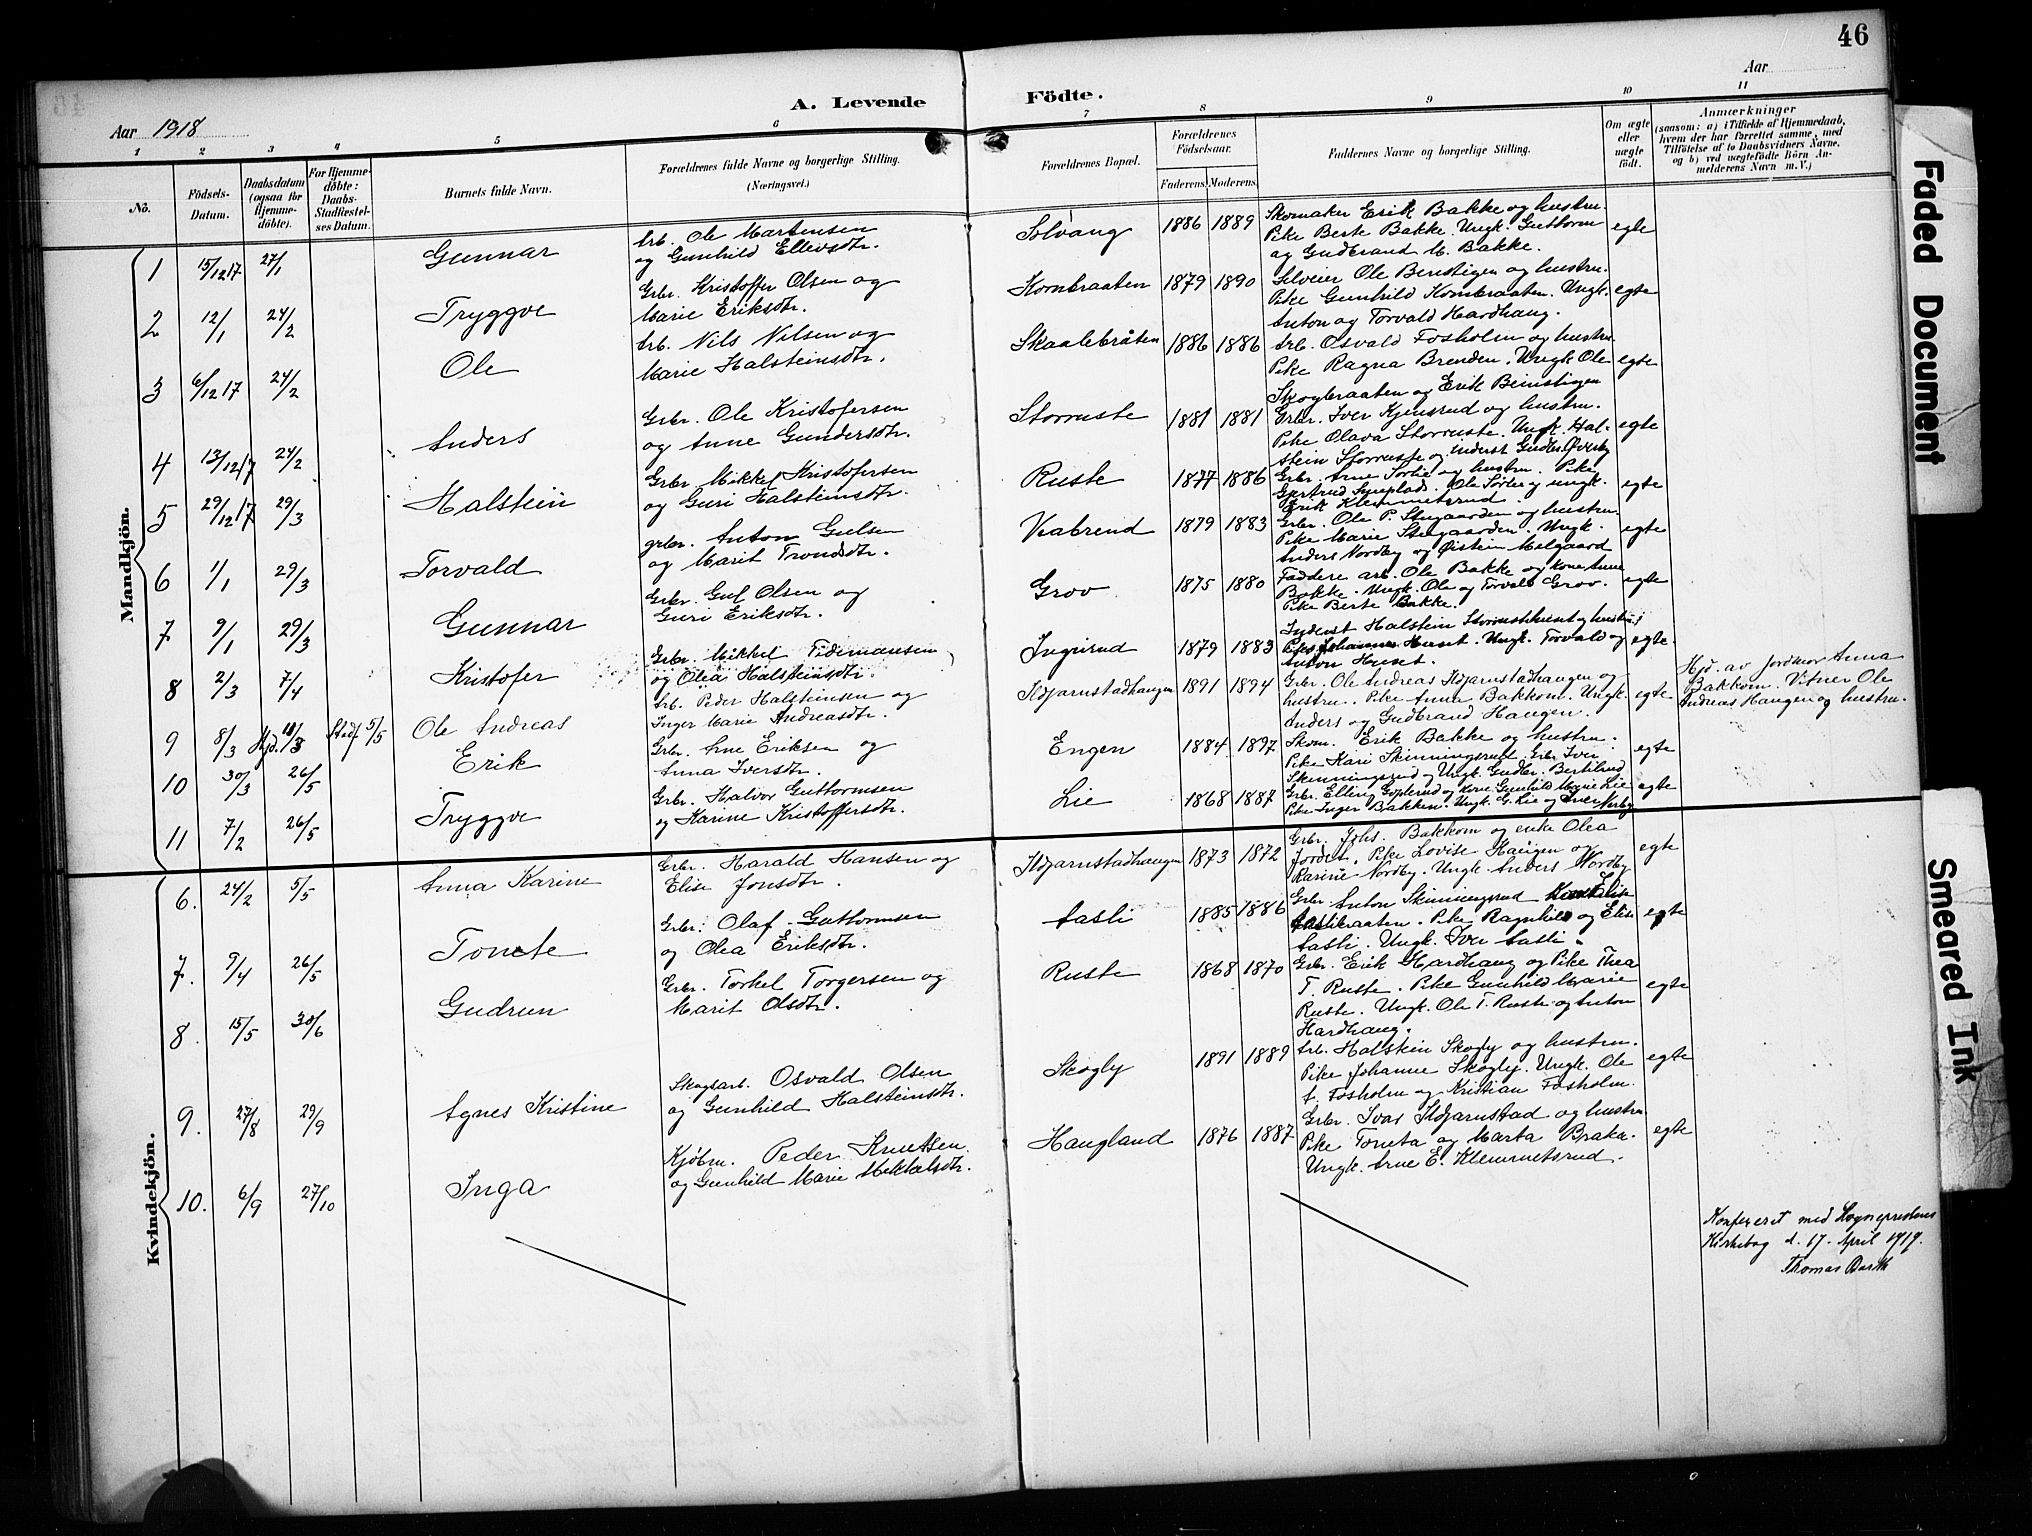 46
A. Levende Födte.
Aar 1918
Aar
1 2 3 4 5 6 7 8 9 10 11
No.
Födsels-Datum.
Daabsdatum (ogsaa for Hjemme-döbte).
For Hjemme-döbte: Daabs-Stadfæstel-ses Datum.
Barnets fulde Navn.
Forældrenes fulde Navne og borgerlige Stilling. (Næringsvei.)
Forældrenes Bopæl.
Forældrenes Födselsaar.
Faderens. Moderens.
Faddernes Navne og borgerlige Stilling.
Om ægte eller uægte födt.
Anmærkninger
(saasom: a) i Tilfælde af Hjemmedaab, hvem der har forrettet samme, med Tilföielse af to Daabsvidners Navne, og b) ved uægtefödte Börn Anmelderens Navn m. V.)
Mandkjön.
1 15/12 17 27/1 Gunnar
Arb. Ole Martensen
og Gunhild Ellevsdtr.
Solvang 1886 1889
Skomaker Erik Bakke og hustru.
Pike Berte Bakke. Ungk. Guttorm
og Gudbrand M. Bakke.
egte
2 12/1 24/2 Tryggve
Grbr. Kristoffer Olsen og
Marie Eriksdtr.
Kornbraaten 1879 1890
Selveier Ole Benstigen og hustru.
Pike Gunhild Kornbraaten. Ungk.
Anton og Torvald Hardhaug.
egte
3 6/12 17 24/2 Ole
Arb. Nils Nilsen og
Marie Halsteinsdtr.
Skaalebråten 1886 1886
Arb. Osvald Fosholm og hustru
Pike Ragna Brenden. Ungk. Ole
Skogbraaten og Erik Beinstigen
egte
4 13/12 17 24/2 Anders
Grbr. Ole Kristofersen
og Anne Gundersdtr.
Storruste 1881 1881
Grbr. Iver Kjensrud og hustru.
Pike Olava Storruste. Ungk. Hal-
stein Storruste og inderst Gudbr. Øverby
egte
5 29/12 17 29/3 Halstein
Grbr. Mikkel Kristofersen
og Guri Halsteinsdtr.
Ruste 1877 1886
Grbr. Arne Sørlie og hustru. Pike
Gertrud. Ole Sørlie og ungk.
Erik Klemmetsrud.
egte
6 1/1 29/3 Torvald
grbr. Anton Gulsen
og Marit Trondsdtr.
Vabrend 1879 1883
Grbr. Ole P. Stugaarden og hustru.
Pike Marie Stugaarden. Ungk.
Anders Nordby og Øistein Melgaard
egte
7 9/1 29/3 Gunnar
Grbr. Gul Olsen og
Guri Eriksdtr.
Grov 1875 1880
Faddere arb. Ole Bakke og kone Anne
Bakke. Ungk. Ole og Torvald Grov.
Pike Berte Bakke.
egte
8 2/3 7/4 Kristofer
Grbr. Mikkel Tidemansen
og Olea Halsteinsdtr.
Ingisrud 1879 1883
Inderst Halstein Storrustehuset og hustru;
Pike Johanne Huset. Ungk. Torvald og
Anton Huset.
egte
9 8/3 Hjd. 18/3 Stadf. 5/5 Ole Andreas
Arb. Peder Halsteinsen og
Inger Marie Andreasdtr.
Ildjarnstadhaugen 1891 1894
Grbr. Ole Andreas Ildjarnstadhaugen og
hustru. Pike Anna Bakkom. Ungk.
Anders og Gudbrand Haugen.
egte
Hjd. av Jordmor Anna
Bakkom. Vitner Ole
Andreas Haugen og hustru.
10 30/3 26/5 Erik
Grbr. Arne Eriksen og
Anna Iversdtr.
Engen 1884 1897
Skom. Erik Bakke og hustru.
Pike Kari Skinningsrud Grbr. Iver
Skinningsrud og Ungk. Gudbr. Bertilrud
egte
11 7/2 26/5 Tryggve
Grbr. Halvor Guttormsen
og Karine Kristoffersdtr.
Lie 1868 1887
Grbr. Elling Goplerud og kone Gunhild Marie Lie
Pike Inger Bakken. Ungk. G. Lie og Nerby
egte
Kvindekjön.
6. 24/2 5/5 Anna Karine
Grbr. Harald Hansen og
Elise Jonsdtr.
Ildjarnstadhaugen 1873 1872
Grbr. Johs. Bakkom og enke Olea
Jordet. Pike Lovise Haugen og
Karine Nordby. Ungk. Anders Nordby
egte
7. 9/4 26/5 Tonette
Grbr. Olaf Guttormsen
og Olea Eriksdtr.
Aasli 1885 1886
Grbr. Anton Skinningsrud Elise
Pike Ragnhild og Elise
Aasli. Ungk. Iver Aasli.
egte
8. 15/5 30/6 Gudrun
Grbr. Torkel Torgersen og
Marit Olsdtr.
Ruste 1868 1870
Grbr. Erik Hardhaug og Pike Thea
T. Ruste. Pike Gunhild Marie
Ruste. Ungk. Ole T. Ruste og Anton
Hardhaug.
egte
9. 27/8 29/9 Agnes Kristine
Skogsarb. Osvald Olsen
og Gunhild Halsteinsdtr.
Skogly 1891 1889
Arb. Halstein Skogly og hustru.
Pike Johanne Skogly. Ungk. Ole
A. Fosholm og Kristian Fosholm.
egte
10. 6/9 27/10 Inga
Kjøbm. Peder Knutsen
og Gunhild Marie Mikkelsdtr.
Haugland 1876 1887
Grbr. Ivar Ildjarnstad og hustru
Pike Toneta og Marta Braka.
Ungk. Arne E. Klemmetsrud.
egte
Konfereret med Sogneprestens
Kirkebog d. 17. April 1919.
Thomas Barth
Faded Document
Smeared Ink